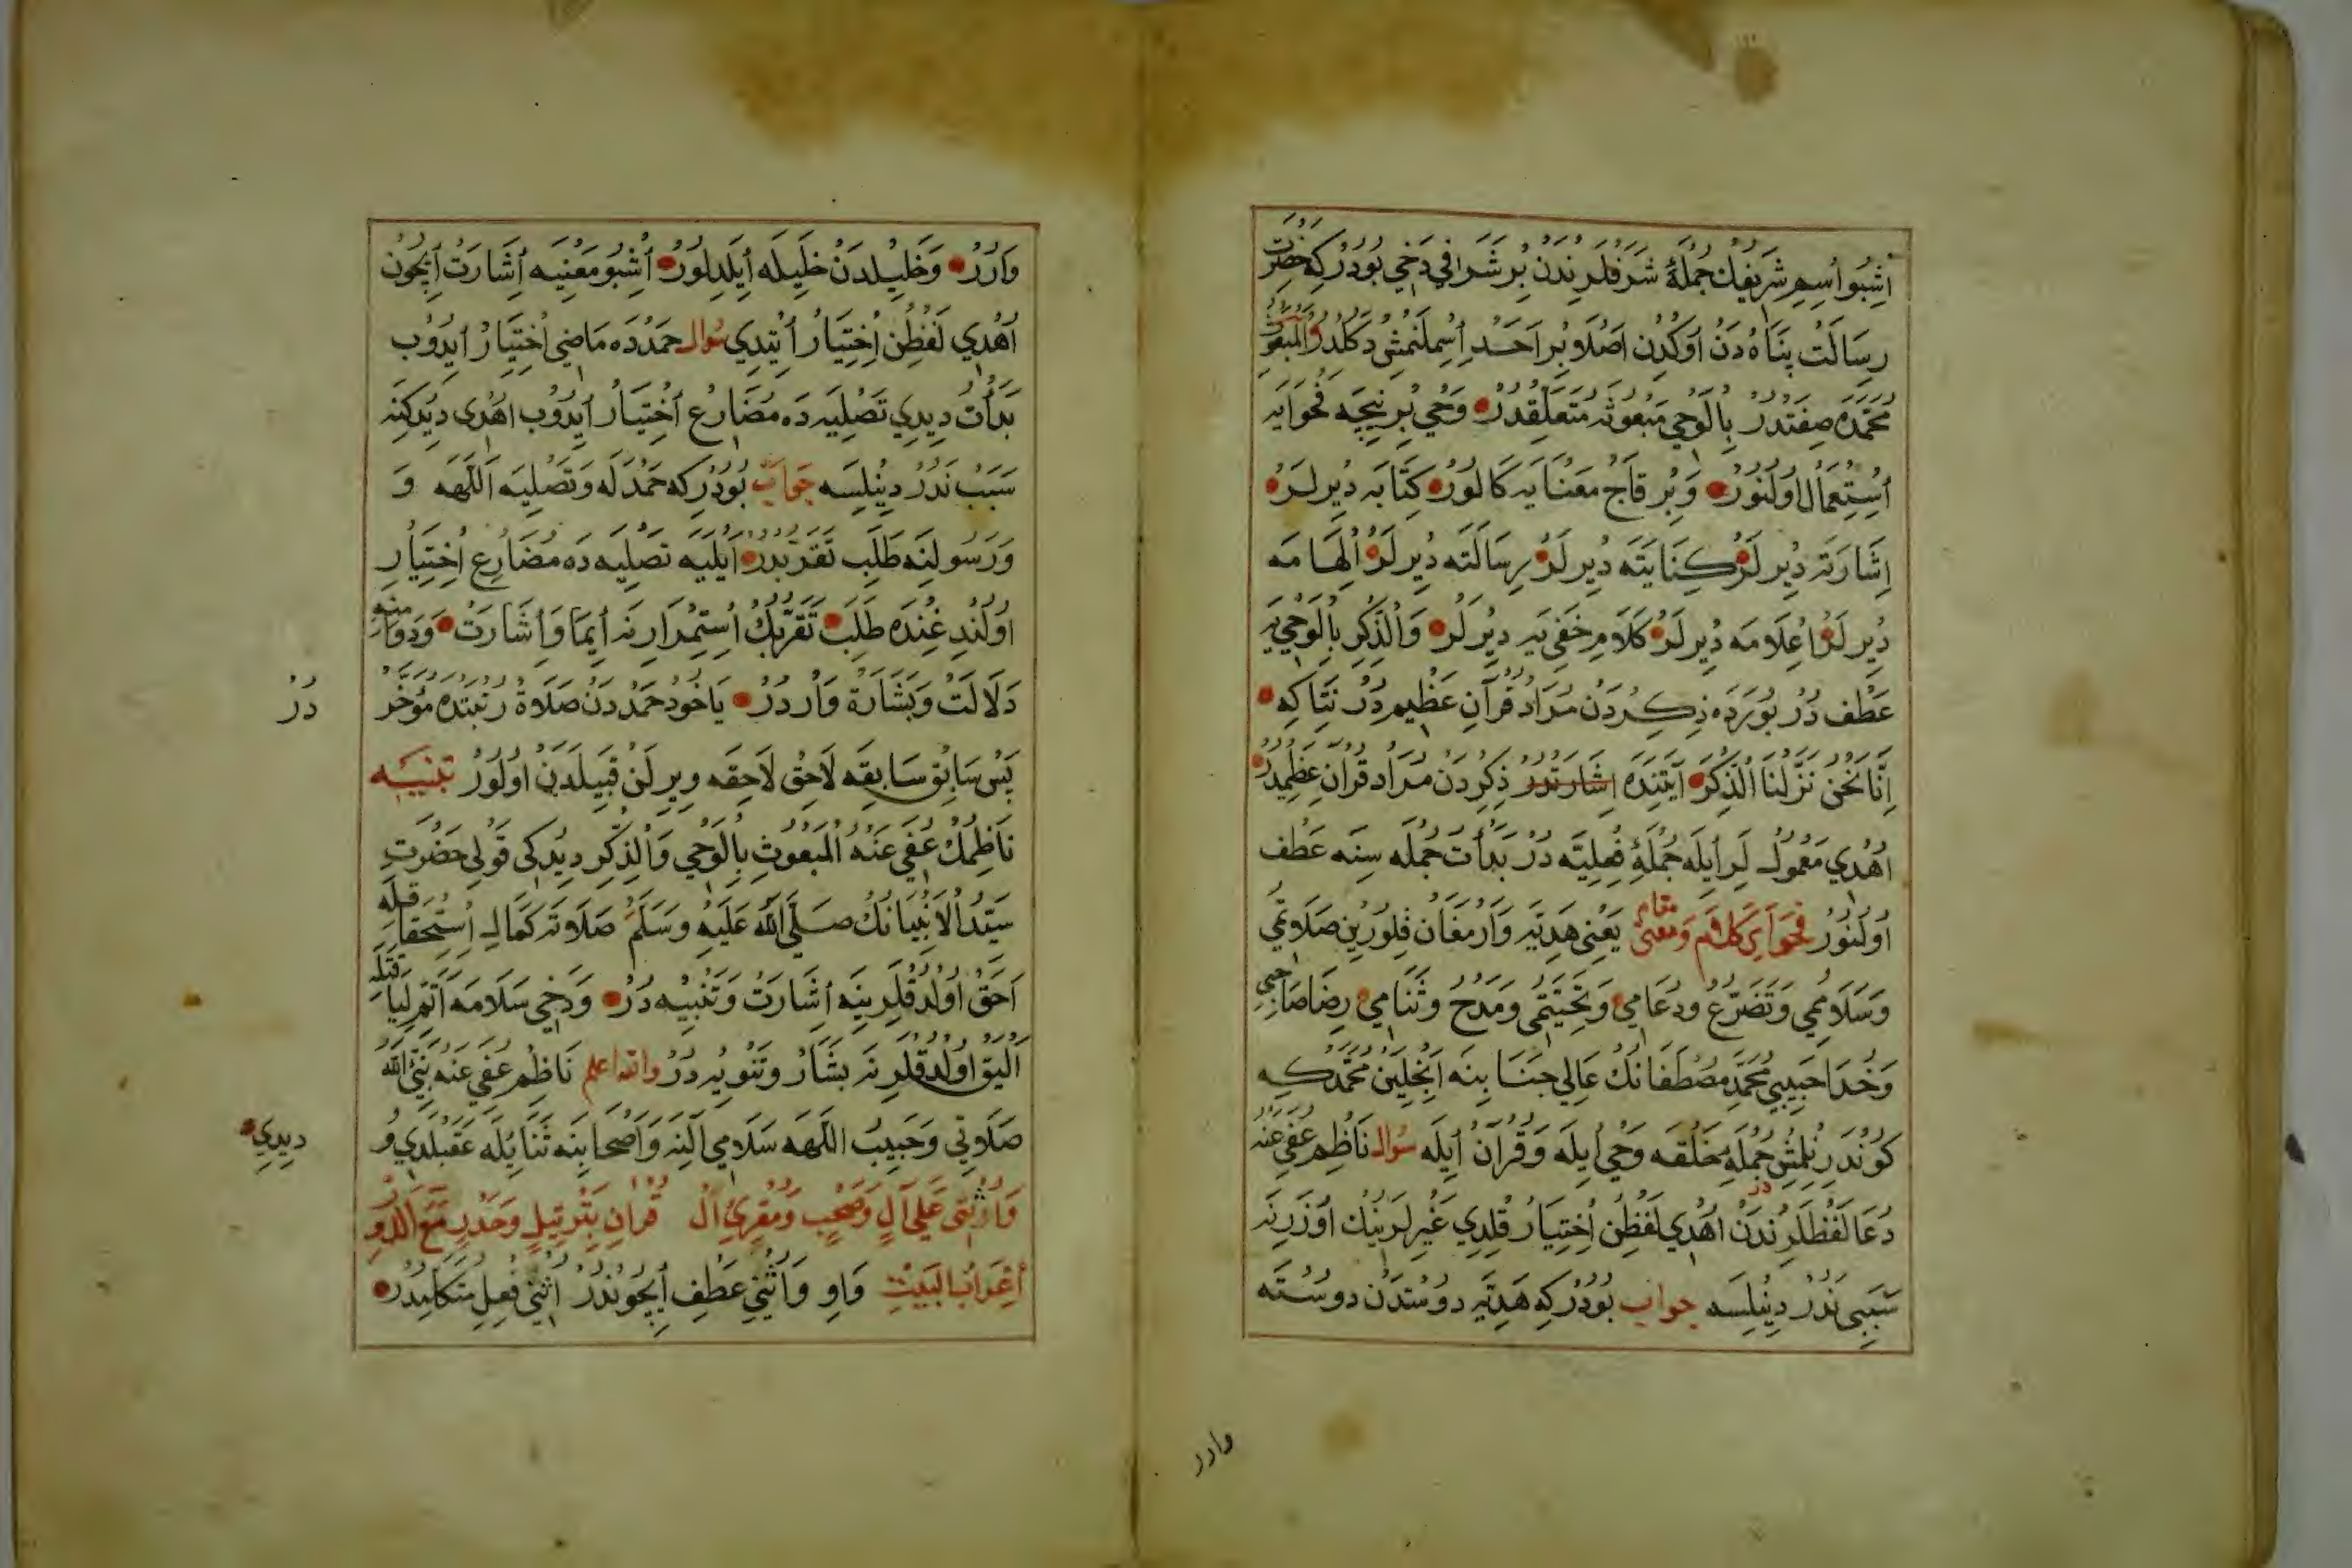 اُشْبُو اِسْمِ شَرِيفِكْ جُمْلَهٔ شَرَفْلَرِنْدَنْ بُرْ شَرَافِي دَخِي بُودُرْ كِه حَضْرَتِ
رِسَالَتْ پَنَاهْ دَنْ اُوكْدِنْ اَصْلَا بِرْ اَحَدْ اِسِمْلَنْمِشْ دَكُلْدُرْ وَالْمَبْعُوثْ
مُحَمَّدَه صِفَتْدُرْ بِالْوَحْيِ مَبْعُوثَه مُتَعَلِّقْدُرْ وَحْيِ بُرْ نِيچَه فَحْوَايَه
اُسْتِعْمَالْ اُولُنُورْ وَبُرْ قَاچْ مَعْنَايَه كَالُورْ كِتَابَه دِيرْلَرْ
اِشَارَتَه دِيرْلَرْ كِنَايَتَه دِيرْلَرْ رِسَالَتَه دِيرْلَرْ اِلْهَامَه
دِيرْلَرْ اِعْلَامَه دِيرْلَرْ كَلَامِ خَفِيَه دِيرْلَرْ وَالذِّكْرِ بِالْوَحْيِيَه
عَطْفْ دُرْ بُورَدَه ذِكِرْدَنْ مُرَادْ قُرْآنِ عَظِيمْ دُرْ نِتَاكِه
اِنَّا نَحْنُ نَزَّلْنَا الذِّكْرَ آيَتِنْدَه اِشَارَتْدُرْ ذِكِرْدَنْ مُرَادْ قُرْآنِ عَظِيمْدُرْ
اُهْدِي مَعْمُولْ لَرِ اِيلَه جُمْلَهٔ فِعْلِيَّه دُرْ بَدَأْتُ جُمْلَه سِنَه عَطْفْ
اُولُنُورْ فَحْوَايِ كَلَامْ وَمَعْنَىٰ مَقَامْ يَعْنِي هَدِيَّه وَارْمَغَانْ قِلُورِينْ صَلَاتِمِي
وَسَلَامِمِي وَتَضَرُّعْ وَدُعَامِي وَتَحِيَّتِمِي وَمَدْحْ وَثَنَامِي رِضَا صَاحِبِي
وَخُدَا حَبِيبِي مُحَمَّدِ مُصْطَفَانِكْ عَالِي جَنَابِنَه اَنْجِلَيِنْ مُحَمَّدْ كِه
كُونْدَرِلْمِشْ جُمْلَه خَلْقَه وَحْيِ اِيلَه وَقُرْآنْ اِيلَه سُوَالْ نَاظِمْ عُفِيَ عَنْهُ
دُعَا لَفْظْلَرِنْدَنْ اُهْدِي لَفْظِنْ اِخْتِيَارْ قِلْدِي غَيْرِلَرِينِكْ اُوزَرِنَه
سَبَبِي نَدُرْ دِينِلْسَه جَوَابْ بُودُرْ كِه هَدِيَّه دُوسْتْدَنْ دُوسْتَه
وارر
وَارُرْ وَخَلِيلْدَنْ خَلِيلَه اِيلَدِلُورْ اُشْبُو مَعْنِيَه اِشَارَتْ اِيچُونْ
اُهْدِي لَفْظِنْ اِخْتِيَارْ اِتْدِي سُوَالْ حَمْدَدَه مَاضِي اِخْتِيَارْ اِيدُوبْ
بَدَأْتُ دِيدِي تَصْلِيَه دَه مُضَارِعْ اِخْتِيَارْ اِيدُوبْ اُهْدِي دِيدُكِنَه
سَبَبْ نَدُرْ دِينِلْسَه جَوَابْ بُودُرْ كِه حَمْدَلَه وَتَصْلِيَه اَللّٰهَه وَ
وَرَسُولِنَه طَلَبِ تَقَرُّبْدُرْ اِيلَيَه تَصْلِيَه دَه مُضَارِعْ اِخْتِيَارِ
اُولُنْدِغِنْدَه طَلَبِ تَقَرُّبِكْ اُسْتِمْرَارِنَه اِيمَا وَاِشَارَتْ وَدَوَامِنَه
دَلَالَتْ وَبَشَارَةْ وَارْدُرْ يَاخُودْ حَمْدْدَنْ صَلَاةْ رُتْبَتْدَه مُؤَخَّرْ
دُرْ
پَسْ سَابِقْ سَابِقَه لَاحِقْ لَاحِقَه وِيرِلَنْ قَبِيلْدَنْ اُولُورْ تَنْبِيه
نَاظِمِكْ عُفِيَ عَنْهُ اَلْمَبْعُوثِ بِالْوَحْيِ وَالذِّكْرِ دِيدُكِي قَوْلِي حَضْرَتِ
سَيِّدُ الْاَنْبِيَانِكْ صَلَّى اللّٰهُ عَلَيْهِ وَسَلَّمْ صَلَاتَه كَمَالِ اِسْتِحْقَاقِلَه
اَحَقْ اُولْدُقْلَرِينَه اِشَارَتْ وَتَنْبِيه دُرْ وَدَخِي سَلَامَه اَتَمِّ لِيَاقَتِلَه
اَلْيَقْ اُولْدُقْلَرِنَه بَشَارْ وَتَنْوِيه دُرْ وَاللّٰه اعلم نَاظِمْ عُفِيَ عَنْهُ نَبِيُّ اللّٰه
صَلَاتِي وَحَبِيبُ اللّٰهَه سَلَامِي آلِنَه وَاَصْحَابِنَه ثَنَايِلَه عَقَبْلَدِي وُ
دِيدِي
وَاُثْنِي عَلَى آلٍ وَصَحْبٍ وَمُقْرِئِ الْ قُرَانِ بِتَرْتِيلٍ وَحَدْرٍ مَعَ الدَّوْرِ
اِعْرَابُ الْبَيْتِ وَاوِ وَاُثْنِي عَطْفِ اِيچُونْدُرْ اُثْنِي فِعْلِ مُتَكَلِّمْدُرْ